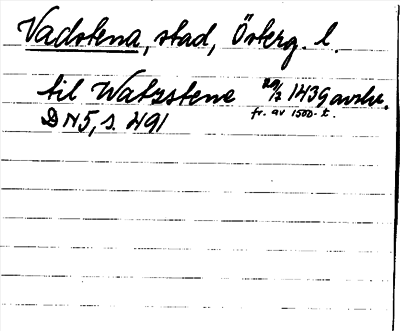 Vadstena, stad, Österg. l.
til Watzstene 29/12 1439 avskr.
DN 5, s. 491 fr. av 1500-t.